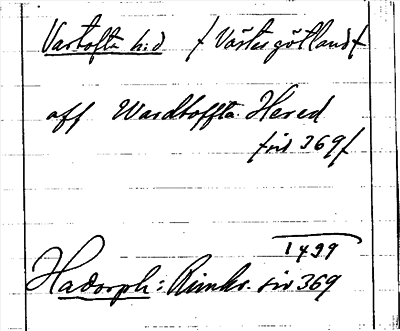 Vartofta h:d /Västergötland/
aff Wardtoffta Hered
/sid 369/
1499
Hadorph: Rimkr. sid 369